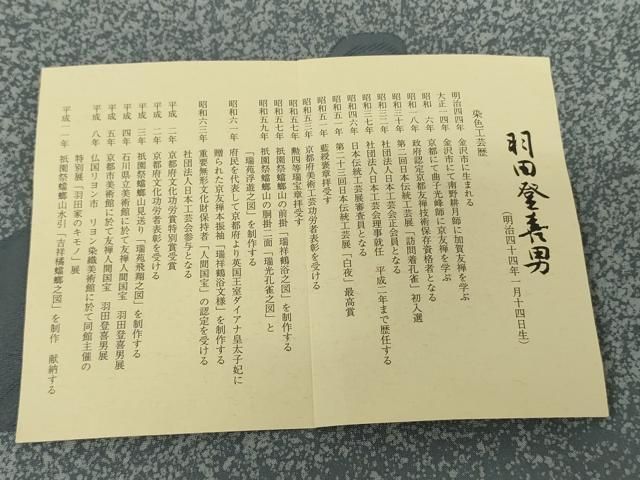 羽田登喜男
(明治四十四年一月十四日生)
染色工芸歴
明治四四年 金沢市に生まれる
大正一四年 金沢市にて南野耕月師に加賀友禅を学ぶ
昭和 六年 京都にて曲子光峰師に京友禅を学ぶ
昭和一八年 政府認定京都友禅技術保存資格者となる
昭和三十年 第二回日本伝統工芸展「訪問着孔雀」初入選
昭和三一年 社団法人日本工芸会正会員となる
昭和三七年 社団法人日本工芸会理事就任 平成二年まで歴任する
昭和四六年 日本伝統工芸展審査員となる
昭和五一年 第二十三回日本伝統工芸展「白夜」最高賞
昭和五一年 藍綬褒章拝受す
昭和五三年 京都府美術工芸功労者表彰を受ける
昭和五七年 勲四等瑞宝章拝受す
昭和五七年 祇園祭蟷螂山の前掛「瑞祥鶴浴之図」を制作する
昭和五九年 祇園祭蟷螂山の胴掛二面「瑞光孔雀之図」と
「瑞苑浮遊之図」を制作する
昭和六一年 府民を代表して京都府より英国王室ダイアナ皇太子妃に
贈られた京友禅本振袖「瑞祥鶴浴文様」を制作する
昭和六三年 重要無形文化財保持者「人間国宝」の認定を受ける
社団法人日本工芸会参与となる
平成 二年 京都府文化功労賞特別賞受賞
平成 二年 京都市文化功労者表彰を受ける
平成 三年 祇園祭蟷螂山見送り「瑞苑飛翔之図」を制作する
平成 四年 石川県立美術館に於て友禅人間国宝 羽田登喜男展
平成 五年 京都市美術館に於て友禅人間国宝 羽田登喜男展
平成 八年 仏国リヨン市 リヨン染織美術館に於て同館主催の
特別展「羽田家のキモノ」展
平成一一年 祇園祭蟷螂山水引「吉祥橘蟷螂之図」を制作 献納する